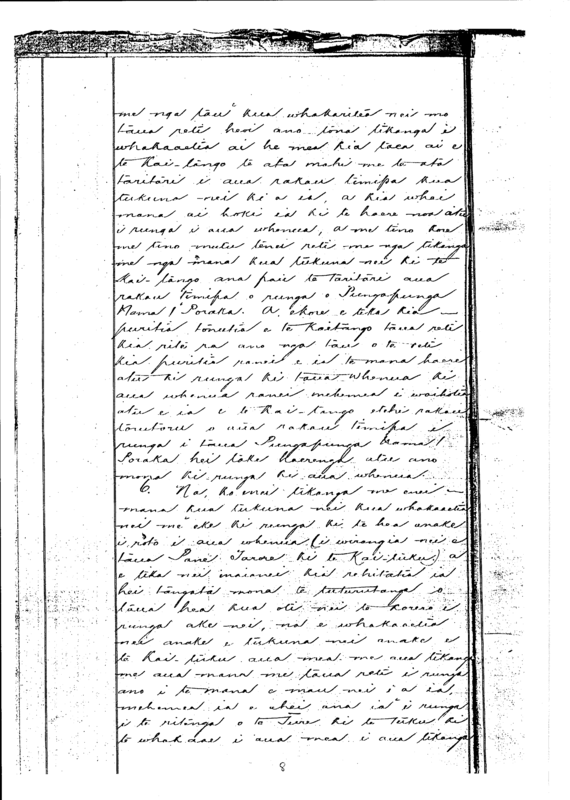 me nga tau kua whakaritea nei mo
taua reti heoi ano tona tikanga i
whakaaetia ai he mea kia taea ai e
te Kai-tango te ata mahi me te ata
taritari i aua rakau timipa kua
tukuna nei ki a ia, a kia whai
mana ai hoki ia ki te haere noa atu
i runga i aua whenua, a me tino kore
me tino mutu tenei reti me nga tikanga
me nga mana kua tukuna nei ki te
Kai-tango ana pau te taritari aua
rakau timipa o runga o Pungapunga
Nama 1 Poraka. A, ekore e tika kia
puritia tonutia e te Kaitango taua reti
kia rite ra ano nga tau o te reti
kia puritia ranei e ia te mana haere
atu ki runga ki taua whenua ki
aua whenua ranei mehemea i waihotia
atu e ia e te Kai-tango etehi rakau
torutoru o aua rakau timipa i
runga i taua Pungapunga Nama 1
Poraka hei take haerenga atu ano
mona ki runga ki aua whenua.
6. Na, ko enei tikanga me enei
mana kua tukuna nei kua whakaaetia
nei me eke ki runga ki te hea anake
i roto i aua whenua (i wirangia nei e
taua Pane Tarore ki te Kai-tuku) a
e tika nei inaianei kia rehitatia ia
hei tangata mona te tuturutanga o
taua hea kua oti nei te korero i
runga ake nei, na e whakaaetia
nei anake e tukuna nei anake e
te Kai-tuku aua mea me aua tikanga
me aua mana me taua reti i runga
ano i te mana e mau nei i a ia,
mehemea ia e ahei ana ia i runga
i te ritenga o te Ture ki te tuku ki
te whakaae i aua mea i aua tikanga
8